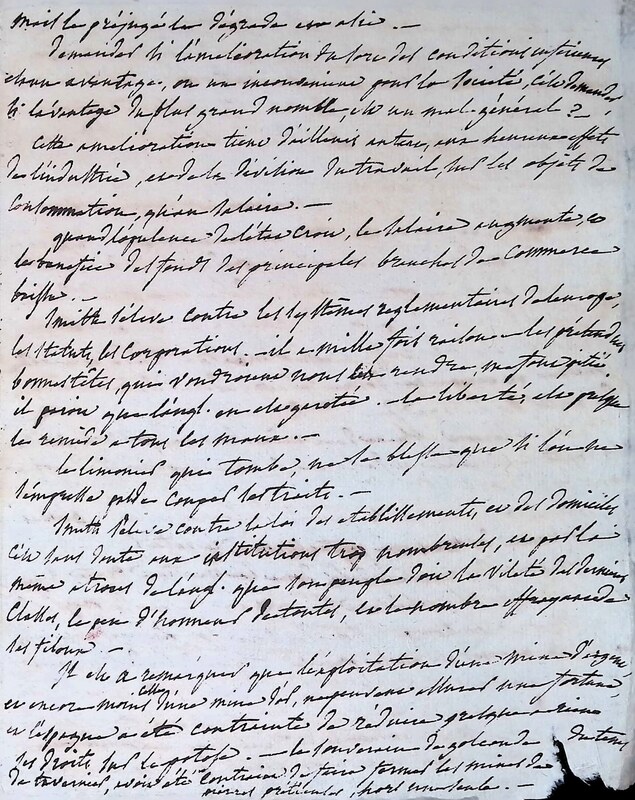 mais le préjugé la dégrade en asie. —
Demander si l'amélioration du sort des conditions inférieures
est un avantage, ou un inconvenient pour la Société, c'est demander
si l'avantage du plus grand nombre, est un mal-général ? —
Cette amélioration tient d'ailleurs autant, aux heureux effets
de l'industrie, et de la division du travail, sur les objets de
Consommation, qu'au Salaire. —
quand l'opulence de l'état croit, le Salaire augmente, et
le benefice des fonds des principales branches de Commerce
baisse. —
Smith s'éleve contre les systêmes reglementaires de l'europe,
les statuts, les corporations. — il a mille fois raison — les prétendues
bonnes têtes, qui voudroient nous les rendre, me font pitié.
il paroit que l'angl. en est garotée. — la liberté, est presque
le remède a tous les maux. —
le limonier qui tombe, ne se blesse que si l'on ne
s'empresse pas de couper les traits. —
Smith s'éleve contre la loi des etablissements, et des domiciles
c'est sans doute aux institutions trop nombreuses, et par là
même atroces de l'angl. que son peuple doit la vileté des dernières
Classes, le peu d'honneur de toutes, et le nombre effrayant de
ses filoux. —
Il est a remarquer que l'exploitation d'une mine d'argent
et encore moins celle d'une mine d'or, ne peuvent assurer une fortune,
et l'espagne a été contrainte de réduire presque a rien
ses droits sur le potose — le souverain de golconde du tems
de tavernier, avoit été contraint de faire fermer les mines de
pierres prétieuses, hors une seule. —